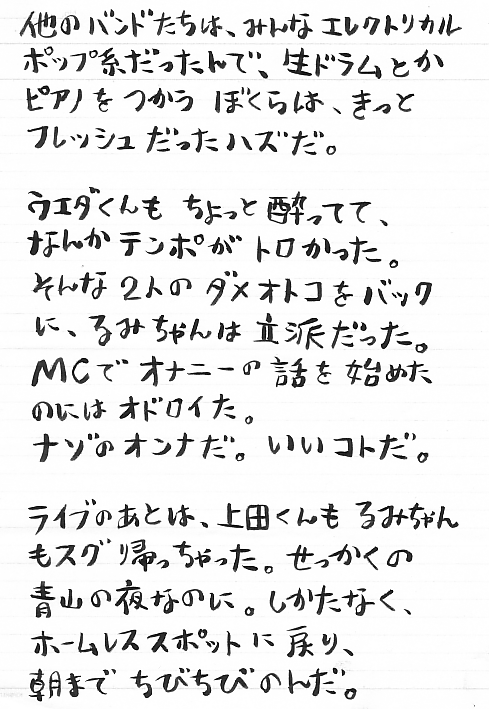 他のバンドたちは、みんなエレクトリカル
ポップ系だったんで、生ドラムとか
ピアノをつかう ぼくらは、きっと
フレッシュだったハズだ。
ウエダくんも ちょっと酔ってて、
なんかテンポがトロかった。
そんな2人のダメオトコをバック
に、るみちゃんは立派だった。
MCでオナニーの話を始めた
のにはオドロイた。
ナゾのオンナだ。いいコトだ。
ライブのあとは、上田くんも るみちゃん
もスグ帰っちゃった。せっかくの
青山の夜なのに。しかたなく、
ホームレススポットに戻り、
朝まで ちびちびのんだ。